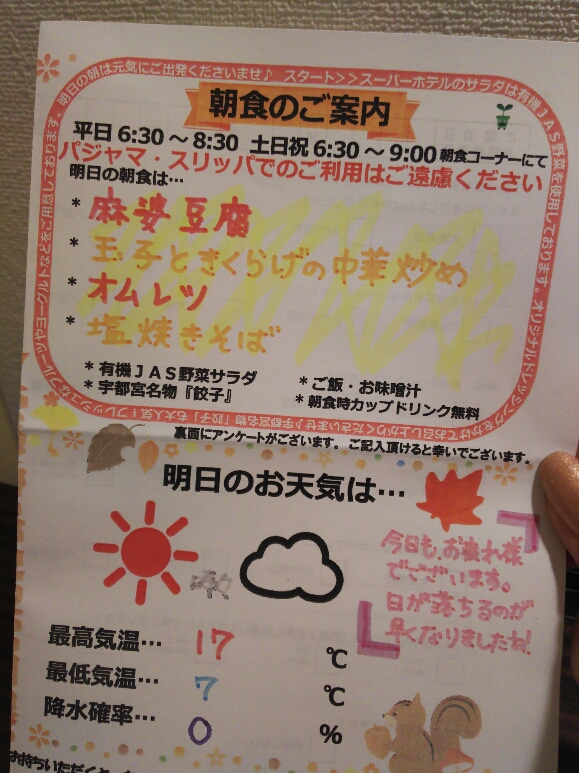 明日の朝は元気にご出発くださいませ♪ スタート>>スーパーホテルのサラダは有機JAS野菜を使用しております。オリジナルドレッシングをかけてお召し上がりくださいませ♪宇都宮名物「餃子」も大人気！フレッシュなフルーツやヨーグルトなどをご用意しております。
朝食のご案内
平日 6:30 ～ 8:30 土日祝 6:30 ～ 9:00 朝食コーナーにて
パジャマ・スリッパでのご利用はご遠慮ください
明日の朝食は…
* 麻婆豆腐
* 玉子ときくらげの中華炒め
* オムレツ
* 塩焼きそば
* 有機JAS野菜サラダ
* 宇都宮名物『餃子』
* ご飯・お味噌汁
* 朝食時カップドリンク無料
裏面にアンケートがございます。ご記入頂けると幸いでございます。
明日のお天気は…
時々
今日も、お疲れ様
でございます。
日が落ちるのが
早くなりましたね!
最高気温… 17 ℃
最低気温… 7 ℃
降水確率… 0 %
お持ちいただくと